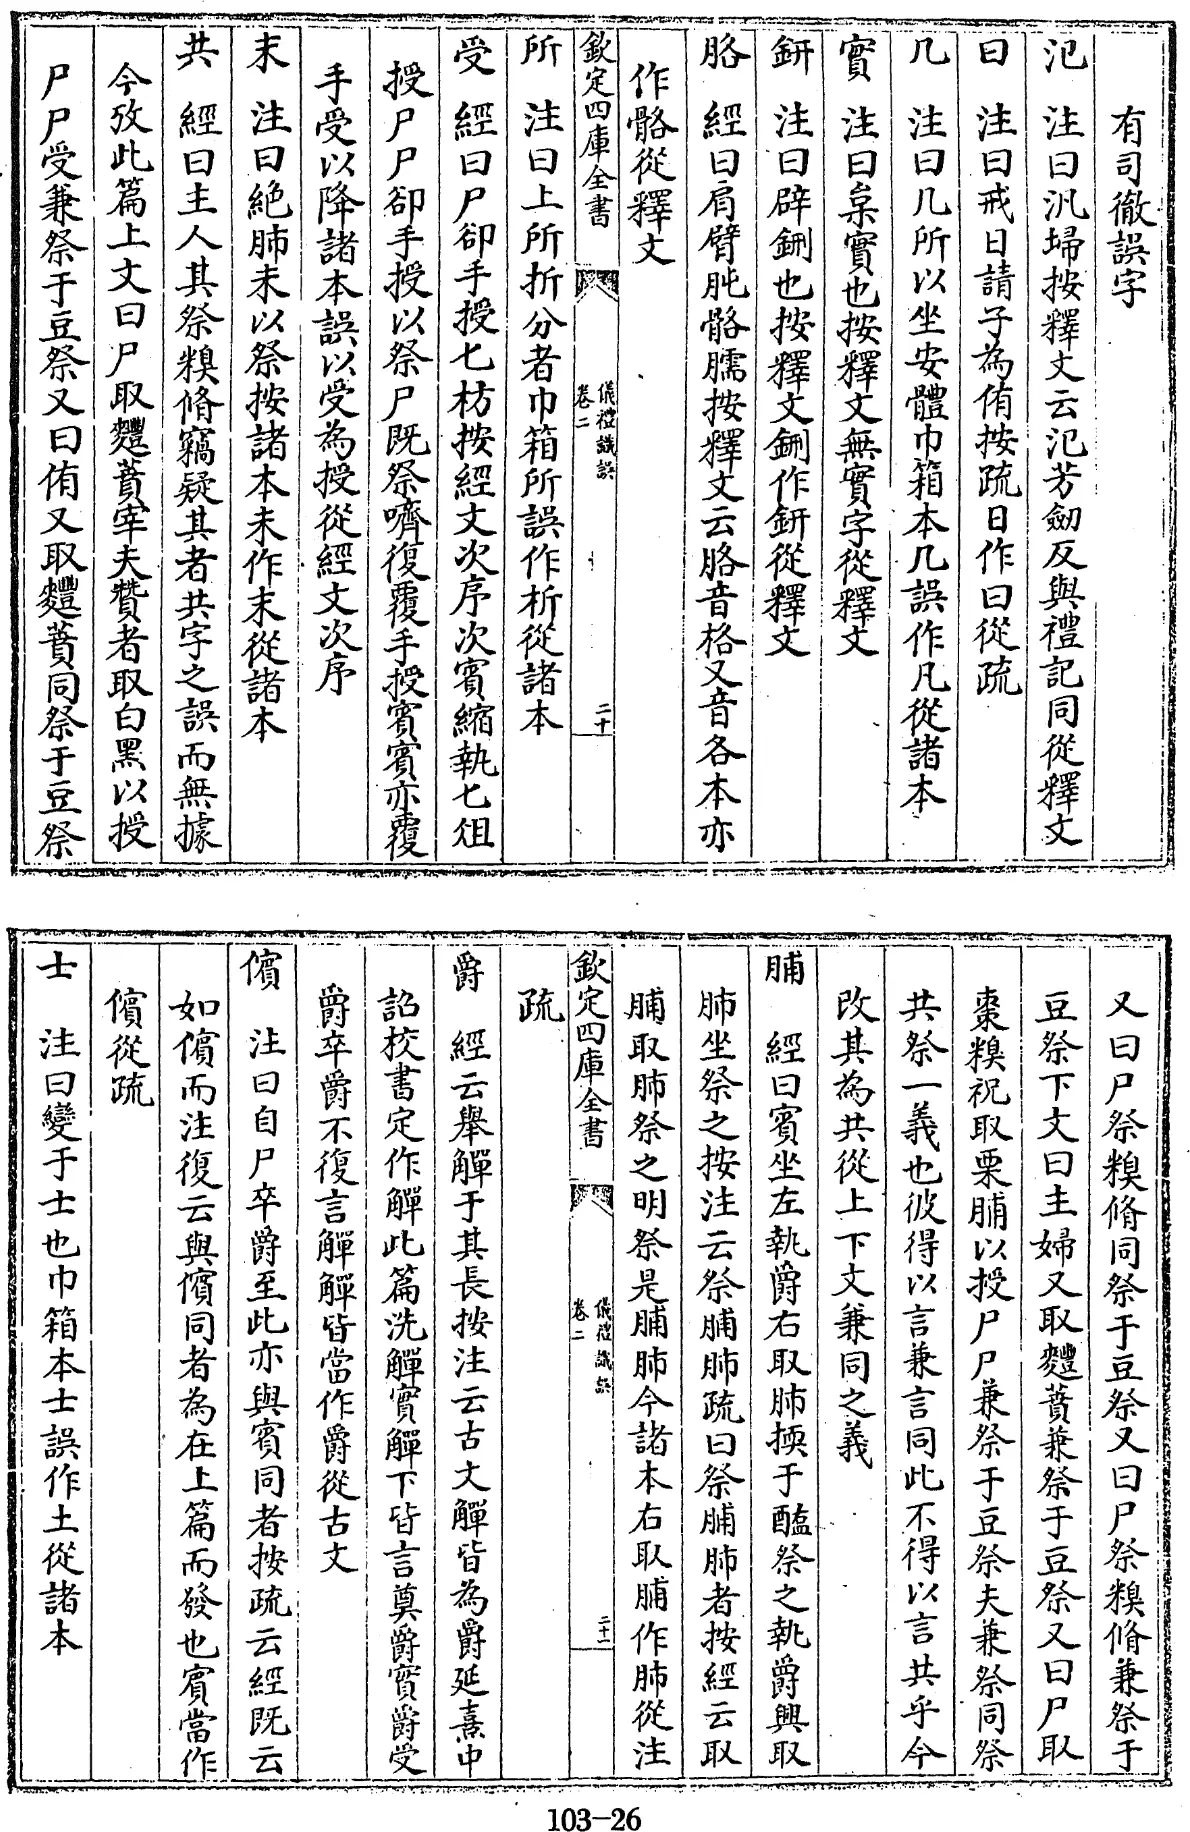 有司徹誤字
氾　注曰汎埽按釋文云氾芳劒反與禮記同從釋文
曰　注曰戒日請子為侑按疏日作曰從疏
几　注曰几所以坐安體巾箱本几誤作凡從諸本
實　注曰枲實也按釋文無實字從釋文
鈃　注曰辟鉶也按釋文鉶作鈃從釋文
胳　經曰肩臂肫骼臑按釋文云胳音格又音各本亦
作骼從釋文
欽定四庫全書　儀禮識誤　卷二　二十
所　注曰上所折分者巾箱所誤作析從諸本
受　經曰尸卻手授匕枋按經文次序次賓縮執匕俎
授尸尸卻手授以祭尸既祭嚌復覆手授賓賓亦覆
手受以降諸本誤以受為授從經文次序
末　注曰絶肺未以祭按諸本未作末從諸本
共　經曰主人其祭糗脩竊疑其者共字之誤而無據
今攷此篇上文曰尸取麷蕡宰夫贊者取白黑以授
尸尸受兼祭于豆祭又曰侑又取麷蕡同祭于豆祭
又曰尸祭糗脩同祭于豆祭又曰尸祭糗脩兼祭于
豆祭下文曰主婦又取麷蕡兼祭于豆祭又曰尸取
棗糗祝取栗脯以授尸尸兼祭于豆祭夫兼祭同祭
共祭一義也彼得以言兼言同此不得以言共乎今
改其為共從上下文兼同之義
脯　經曰賓坐左執爵右取肺擩于醢祭之執爵興取
肺坐祭之按注云祭脯肺疏曰祭脯肺者按經云取
脯取肺祭之明祭是脯肺今諸本右取脯作肺從注
欽定四庫全書　儀禮識誤　卷二　二十一
疏
爵　經云舉觶于其長按注云古文觶皆為爵延熹中
詔校書定作觶此篇洗觶實觶下皆言奠爵實爵受
爵卒爵不復言觶觶皆當作爵從古文
儐　注曰自尸卒爵至此亦與賓同者按疏云經既云
如儐而注復云與儐同者為在上篇而發也賓當作
儐從疏
士　注曰變于士也巾箱本士誤作土從諸本
103-26